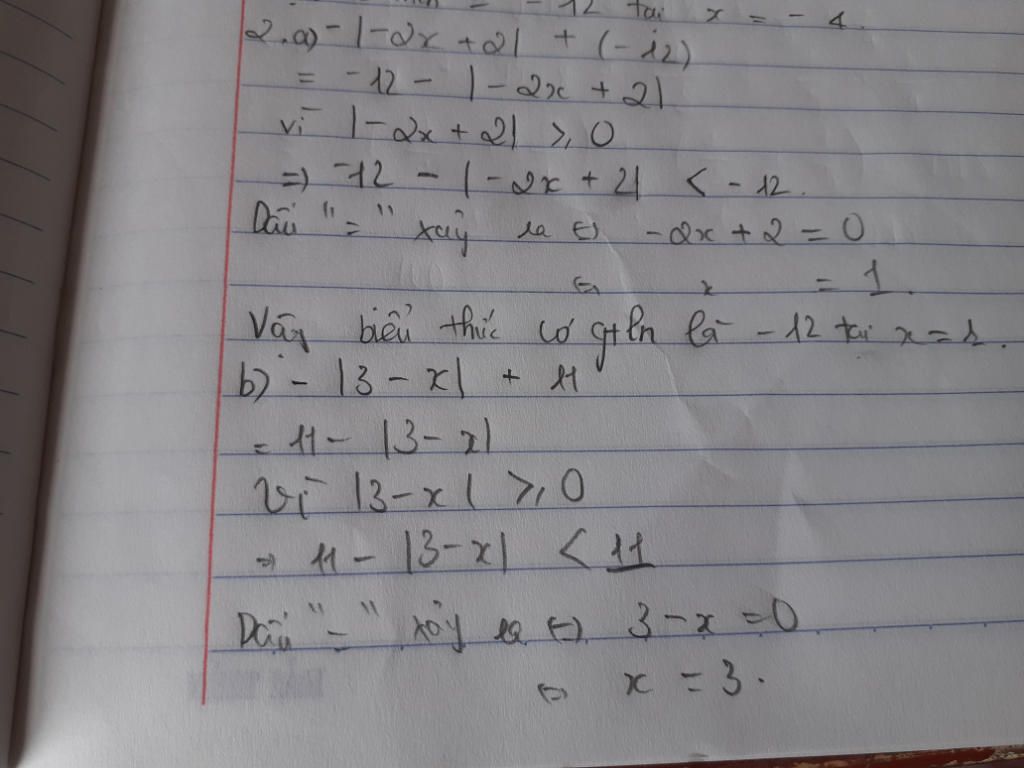 = -12 tại x = -4.
2.a) -|-2x + 2| + (-12)
= -12 - |-2x + 2|
vì |-2x + 2| ⩾ 0
=> -12 - |-2x + 2| < -12.
Dấu "=" xảy ra <=> -2x + 2 = 0
<=> x = 1.
Vậy biểu thức có gtln là -12 tại x = 1.
b) - |3 - x| + 11
= 11 - |3 - x|
Vì |3 - x| ⩾ 0
=> 11 - |3 - x| < 11
Dấu "=" xảy ra <=> 3 - x = 0
<=> x = 3.